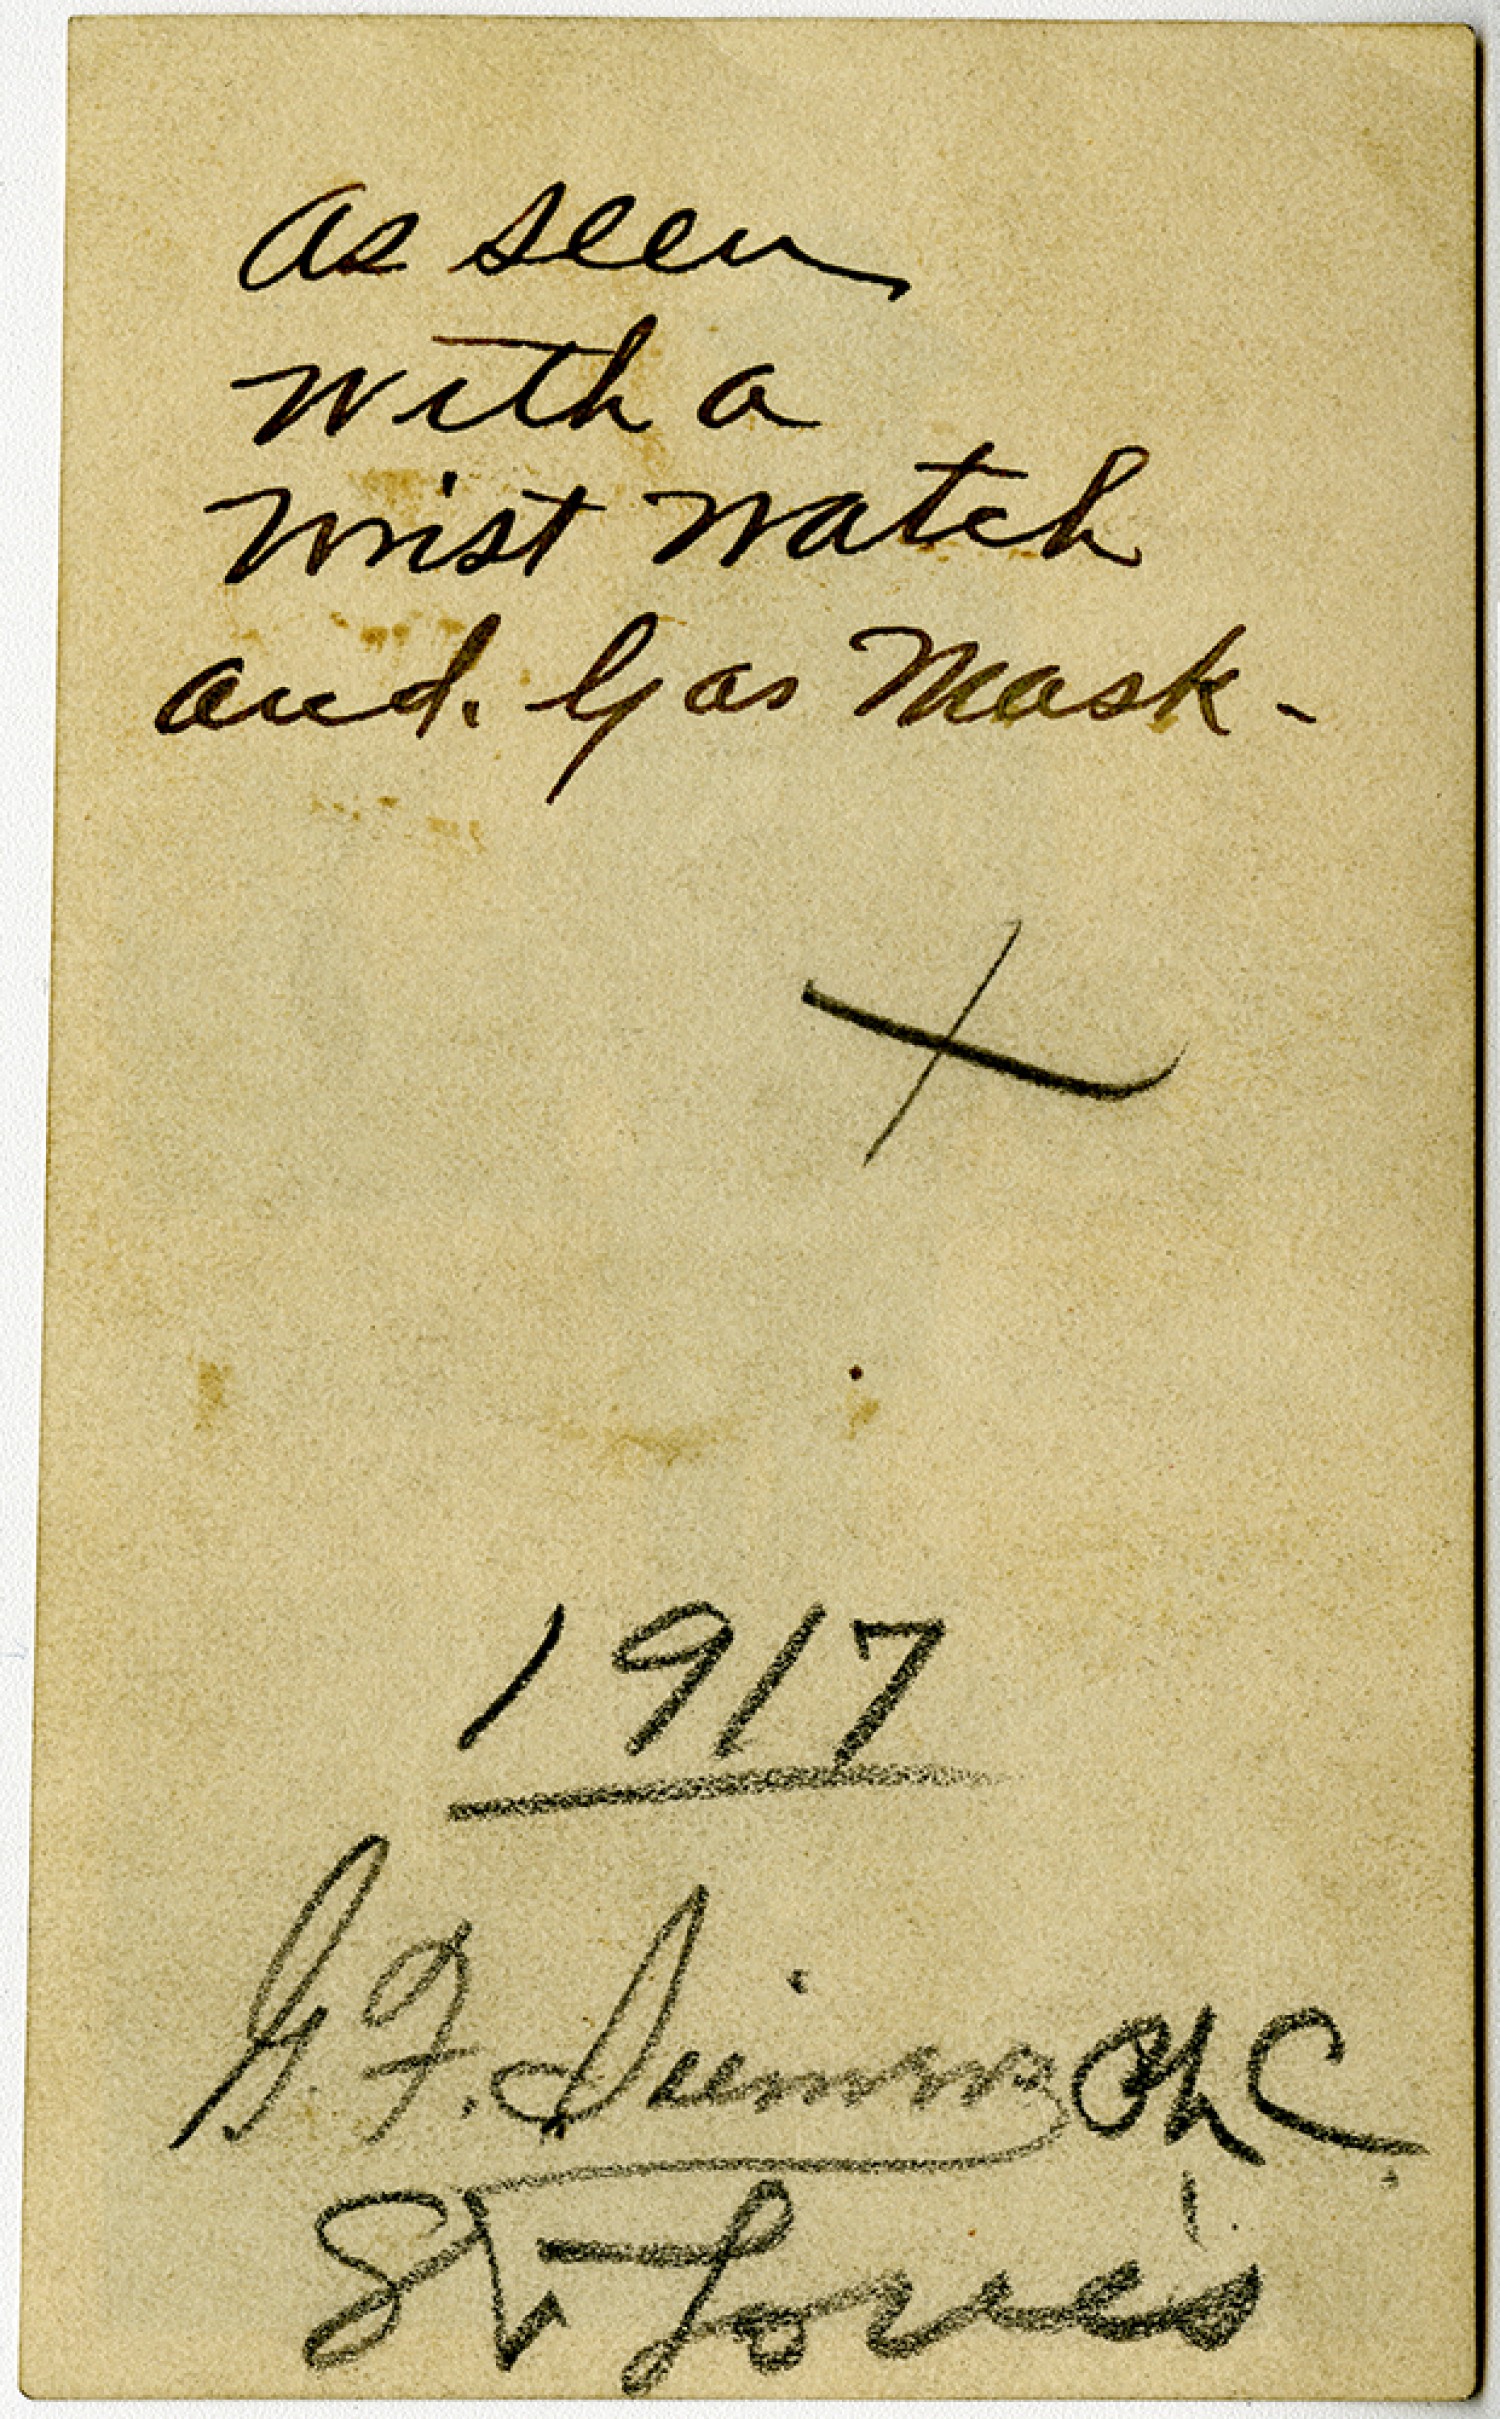 as seen
with a
wrist watch
and. Gas Mask -
X
1917
G. F.
St Louis